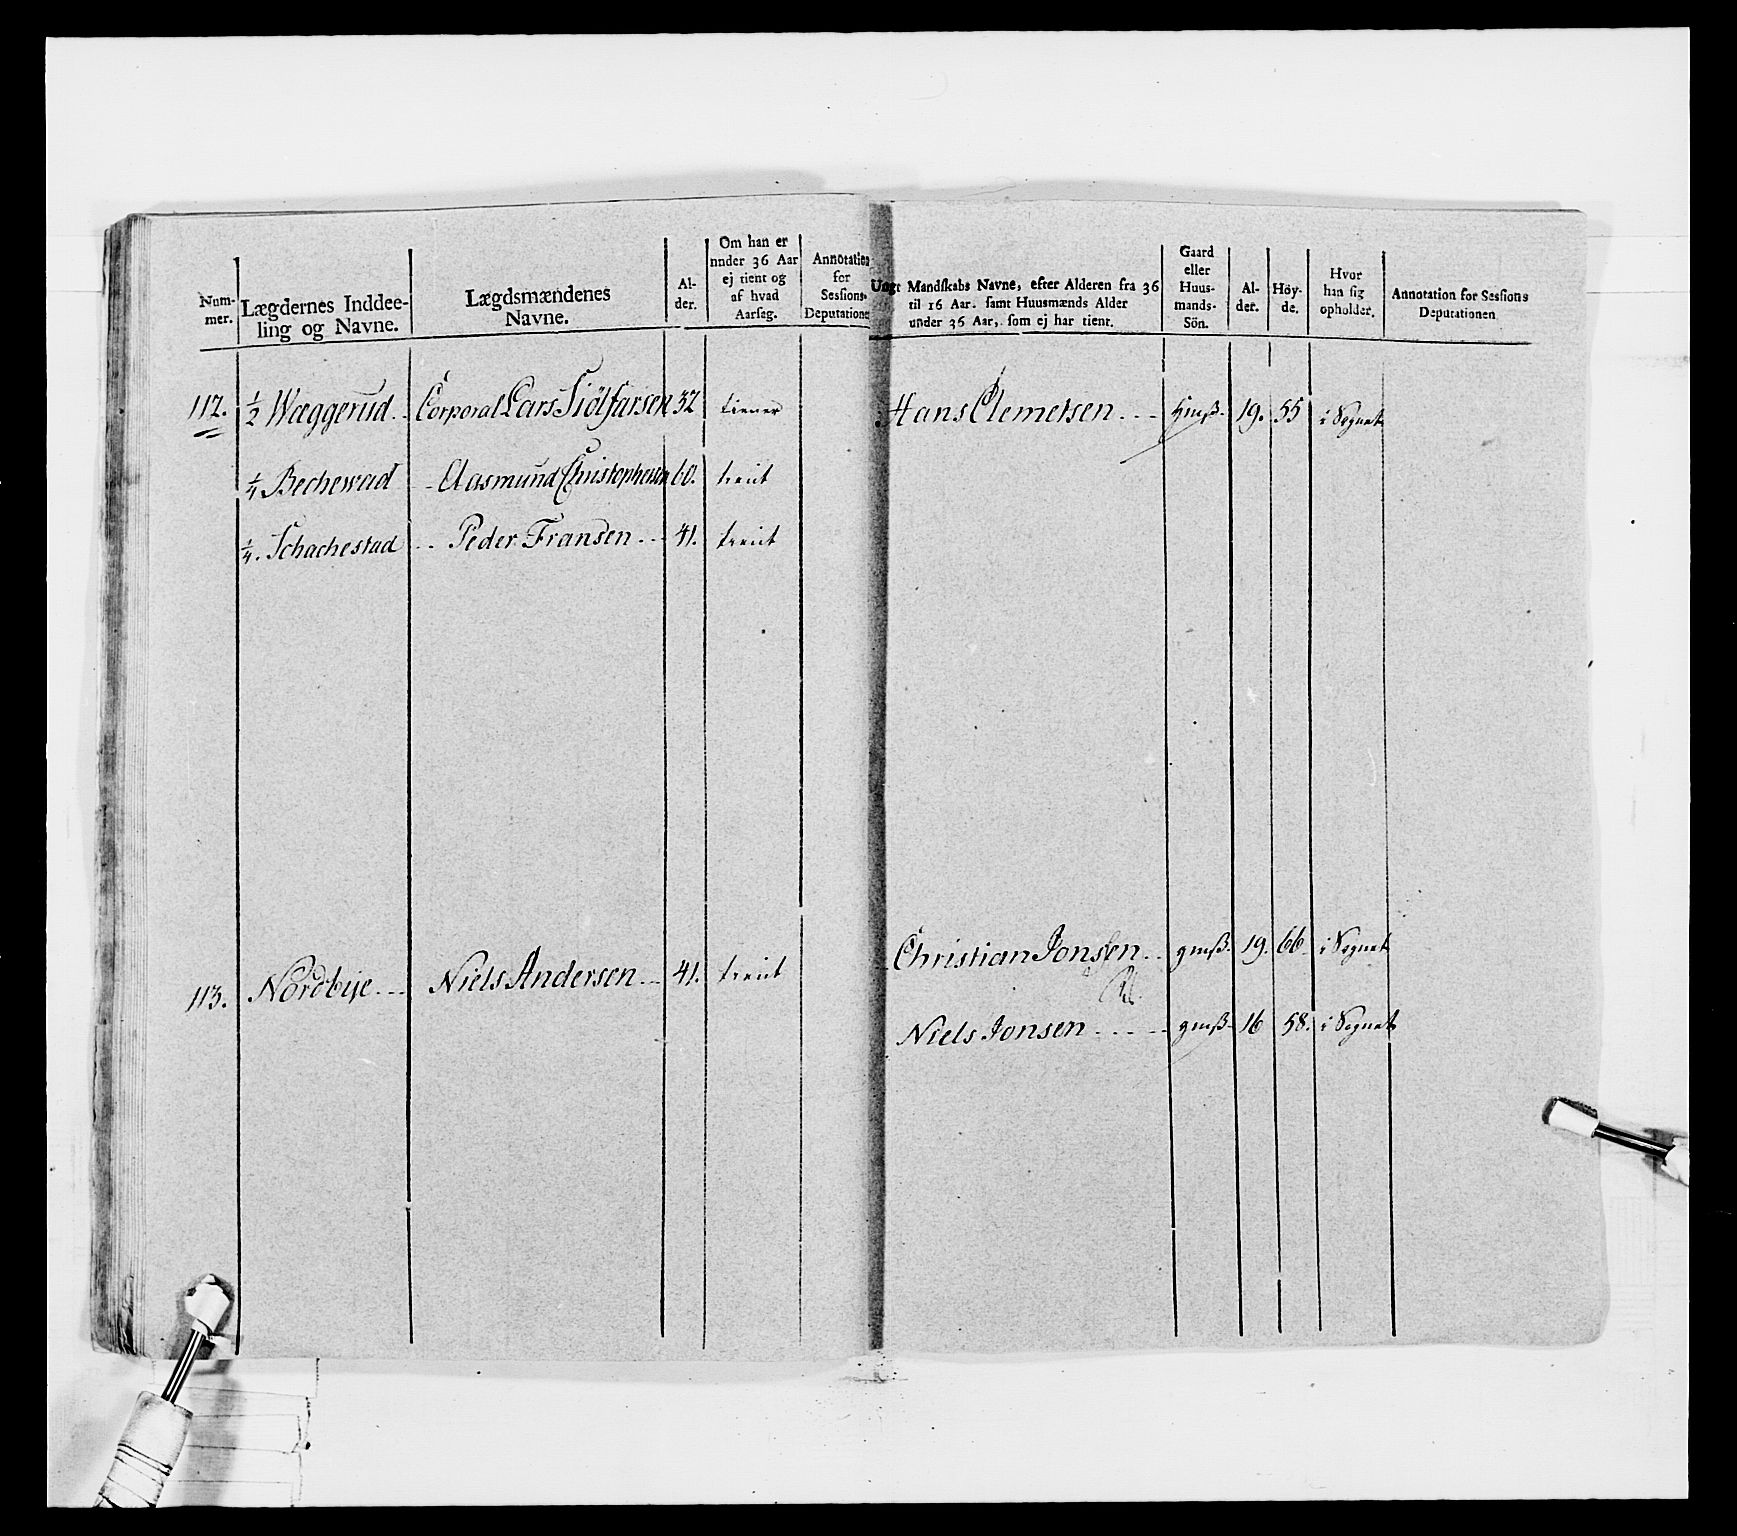 Num-mer. | Lægdernes Inddee-ling og Navne. | Lægdsmændenes Navne. | Al-der. | Om han er under 36 Aar ej tient og af hvad Aarsag. | Annotation for Sessions-Deputationen | Ungt Mandskabs Navne, efter Alderen fra 36 til 16 Aar. samt Huusmænds Alder under 36 Aar, som ej har tient. | Gaard eller Huus-mands-Sön. | Al-der. | Höy-de. | Hvor han sig opholder. | Annotation for Sessions Deputationen
112. ½ Wæggerud. Corporal Lars Siölfarsen 32 tiener Hans Clemetsen 19. 55 i Sognet
¼ Bechewad Aasmund Christophersen 60. tient
¼. Schachestad Peder Fransen 41. tient
Christian Jonsen gmß. 19. 66. i Sognet
113. Nordbye Niels Andersen 41. tient
Niels Jonsen gmß. 16 58. i Sognet